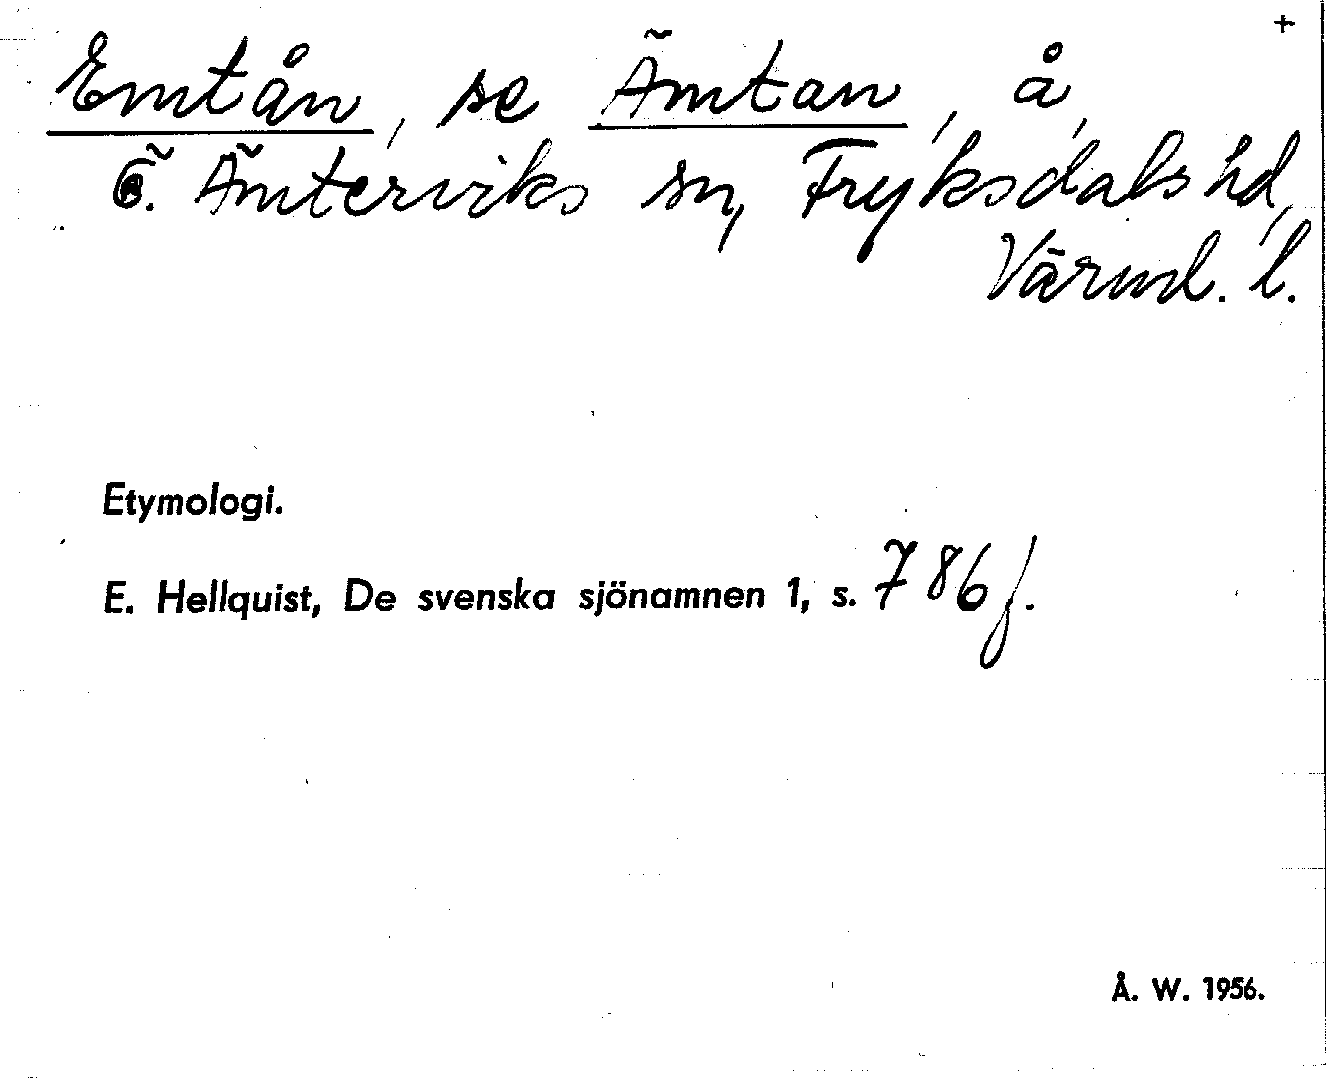 +
Emtån, se Ämtan, å,
Ö. Ämterviks sn, Fryksdals hd,
Värml. l.
Etymologi.
E. Hellquist, De svenska sjönamnen 1, s. 786 f.
Å. W. 1956.